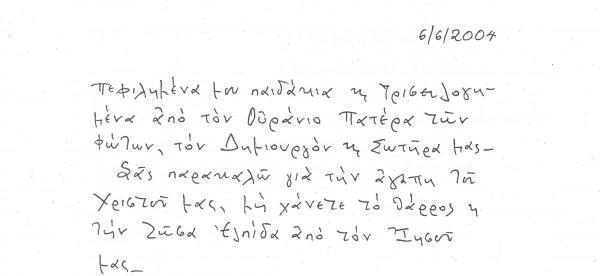 6/6/2004
Πεφιλημένα μου παιδάκια κ τρισευλογη-
μένα ἀπό τόν Οὐράνιο Πατέρα τῶν
φώτων, τόν Δημιουργόν κ Σωτῆρα μας_
Σᾶς παρακαλῶ γιά τήν ἀγάπη τοῦ
Χριστοῦ μας, μή χάνετε τό θάρρος κ
τήν ζῶσα ἐλπίδα ἀπό τόν Ἰησοῦ
μας_